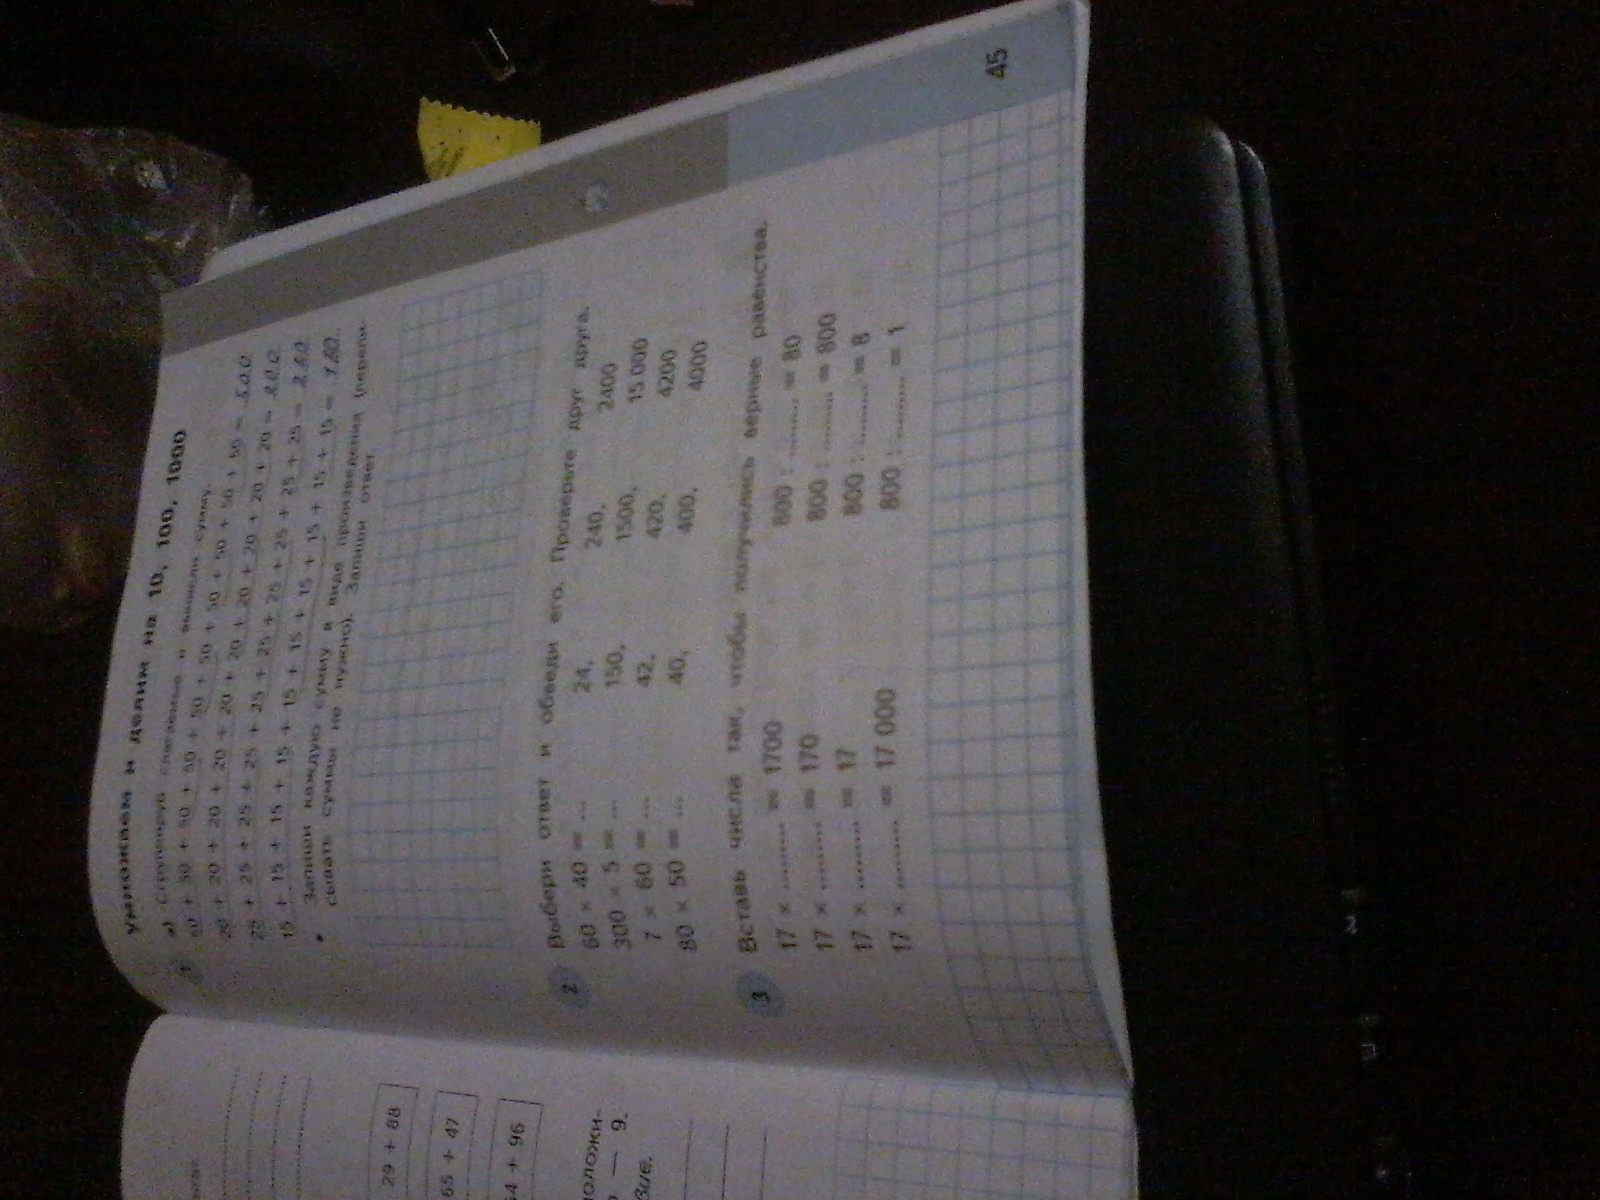 УМНОЖАЕМ И ДЕЛИМ НА 10, 100, 1000
1 а) Сгруппируй слагаемые и вычисли сумму.
50 + 50 + 50 + 50 + 50 + 50 + 50 + 50 + 50 + 50 = 500
20 + 20 + 20 + 20 + 20 + 20 + 20 + 20 + 20 + 20 = 200
25 + 25 + 25 + 25 + 25 + 25 + 25 + 25 + 25 + 25 =
15 + 15 + 15 + 15 + 15 + 15 + 15 + 15 + 15 + 15 =
• Запиши каждую сумму в виде произведения (перепи-
сывать суммы не нужно). Запиши ответ.
2 Выбери ответ и обведи его. Проверьте друг друга.
60 × 40 = ... 24, 240, 2400
300 × 5 = ... 150, 1500, 15 000
7 × 60 = ... 42, 420, 4200
80 × 50 = ... 40, 400, 4000
3 Вставь числа так, чтобы получились верные равенства.
17 × ......... = 1700 800 : ......... = 80
17 × ......... = 170 800 : ......... = 800
17 × ......... = 17 800 : ......... = 8
17 × ......... = 17 000 800 : ......... = 1
45
29 + 88
65 + 47
54 + 96
— 9.